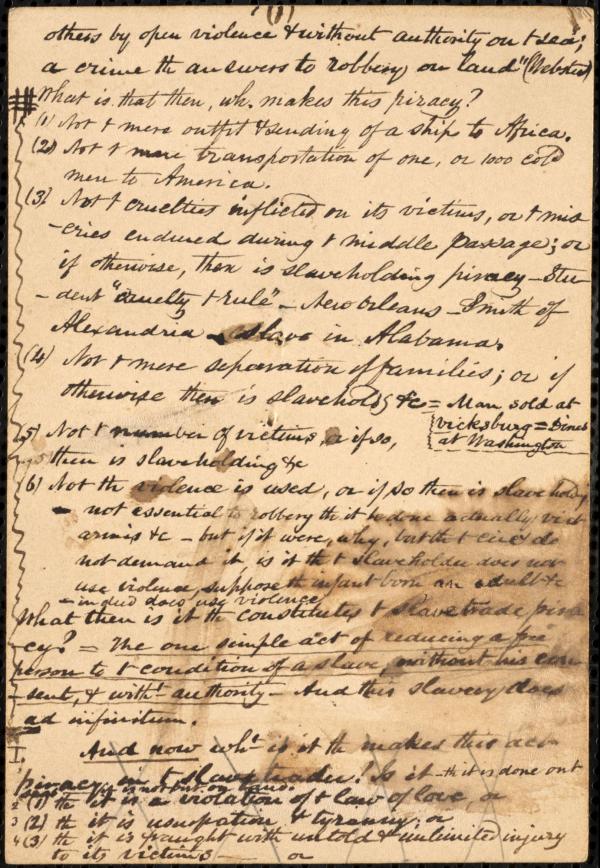 (1)
others by open violence & without authority on t sea;
a crime th answers to robbery on land" (Webster)
What is that then, wh. makes this piracy?
(1) Not t mere outfit & sending of a ship to Africa.
(2) Not t mere transportation of one, or 1000 cold
men to America.
(3) Not t cruelties inflicted on its victims, or t mis
-eries endured during t middle passage; or
if otherwise, then is slaveholding piracy - Stu-
-dent "cruelty t rule" - New Orleans - Smith of
Alexandria - slave in Alabama.
(4) Not t mere separation of families; or if
otherwise then is slavehold,g &c = Man sold at
vicksburg =
at Washington
(5) Not t number of victims, or if so,
then is slaveholding &c
(6) Not th violence is used, or if so then is slaveholdg
- not essential to robbery th it be done actually vi et
armis &c - but if it were, why, but th t do
not demand it, is it th t slaveholder does not
use violence, suppose th infant born an adult &c
- indeed does use violence
What then is it th constitutes t slave trade pira
-cy? = The one simple act of reducing a free
person to t condition of a slave, without his con
-sent, & witht authority - And this slavery does
ad infinitum.
I. And now wht is it th makes this act
piracy in t slave trader? Is it - th it is done out
2 (1) th it is a violation of t law of love, or
3 (2) th it is usurpation & tyranny; or
4 (3) th it is fraught with untold & unlimited injury
to its victims — or